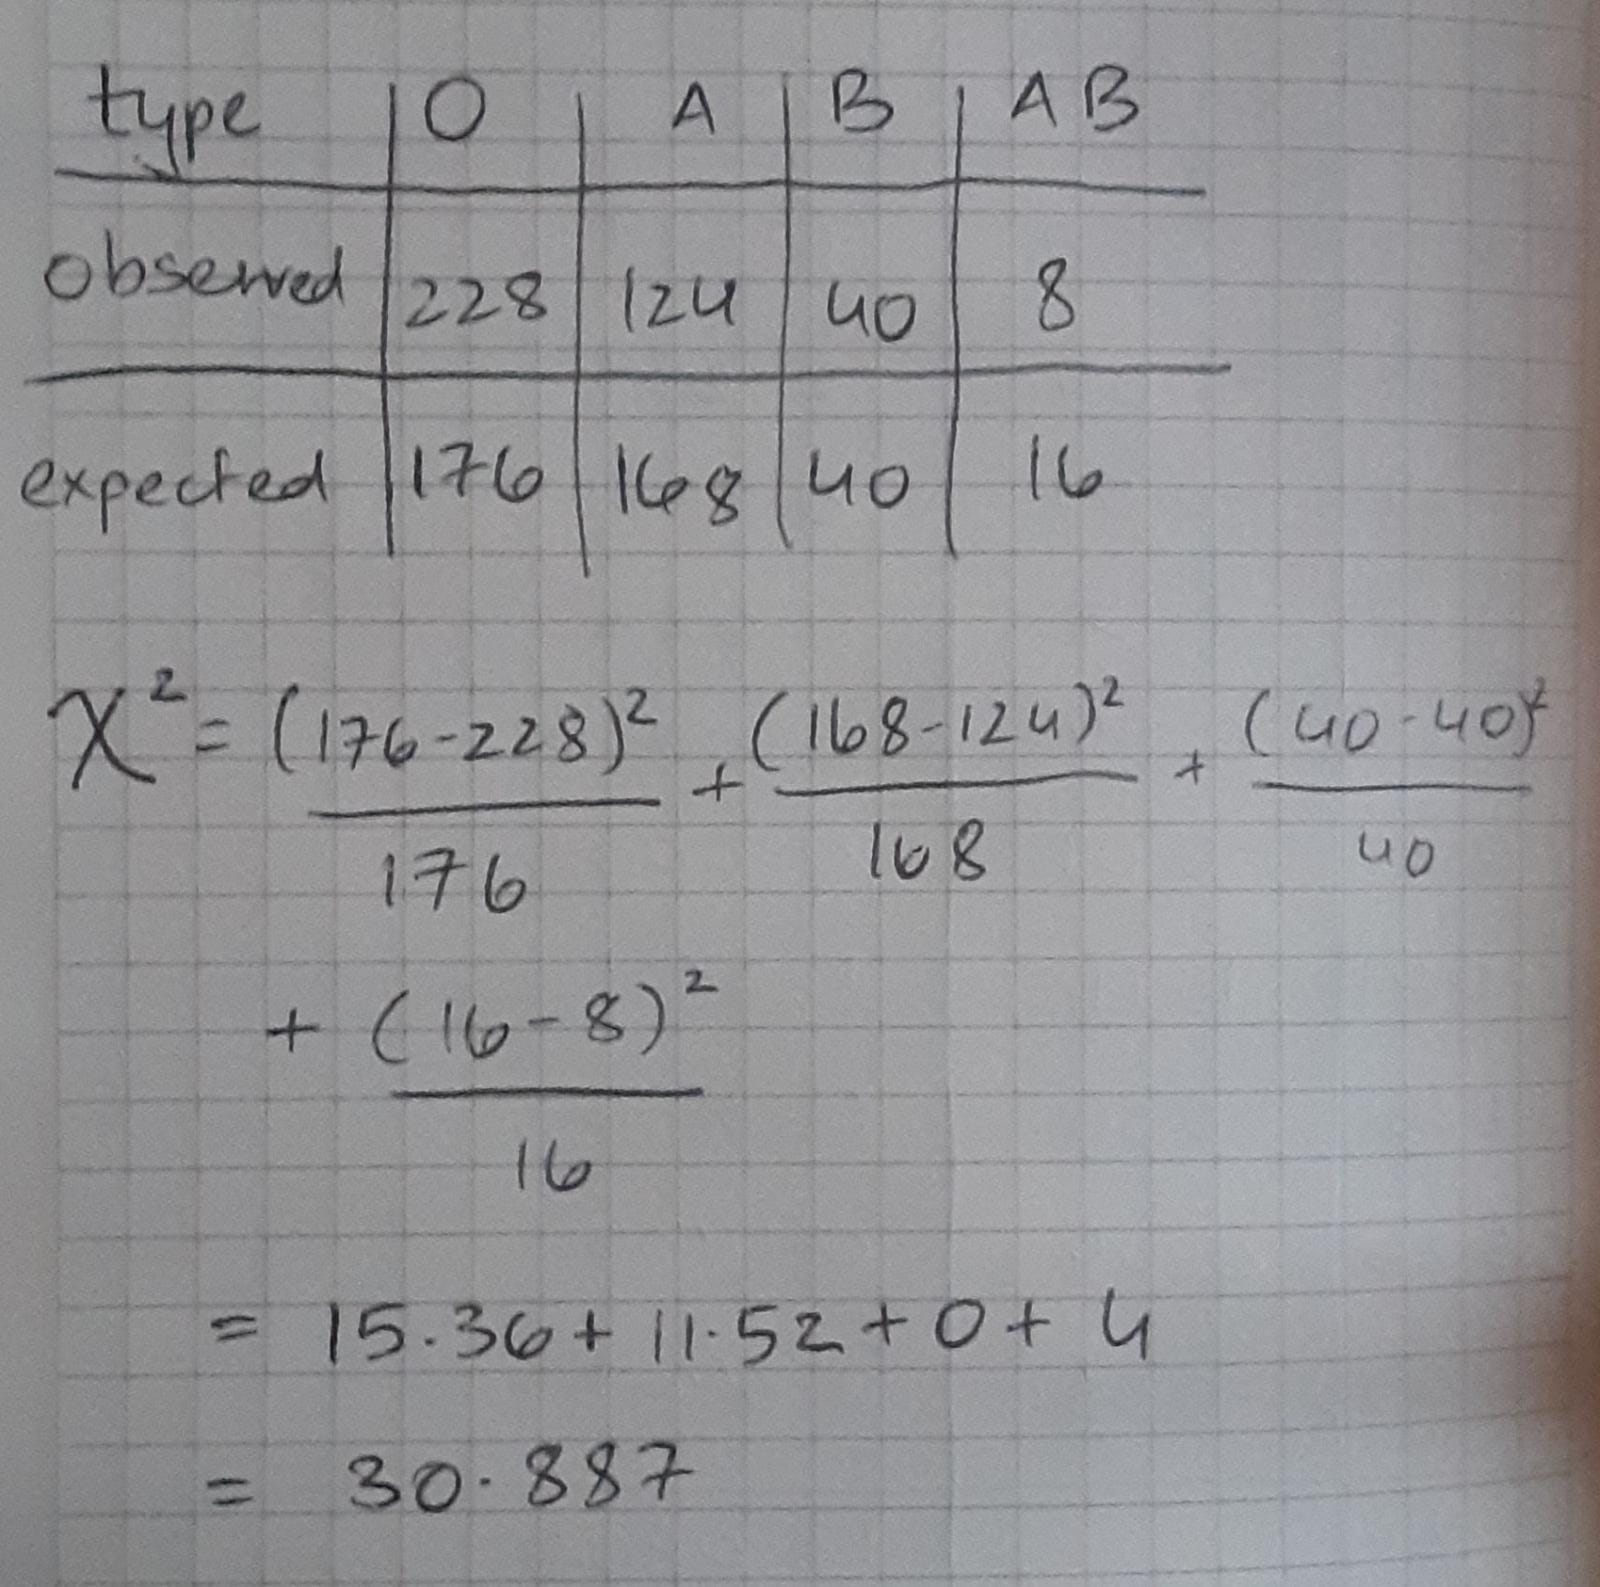 type | O | A | B | AB
observed | 228 | 124 | 40 | 8
expected | 176 | 168 | 40 | 16
χ² = (176-228)²/176 + (168-124)²/168 + (40-40)²/40
+ (16-8)²/16
= 15.36 + 11.52 + 0 + 4
= 30.887